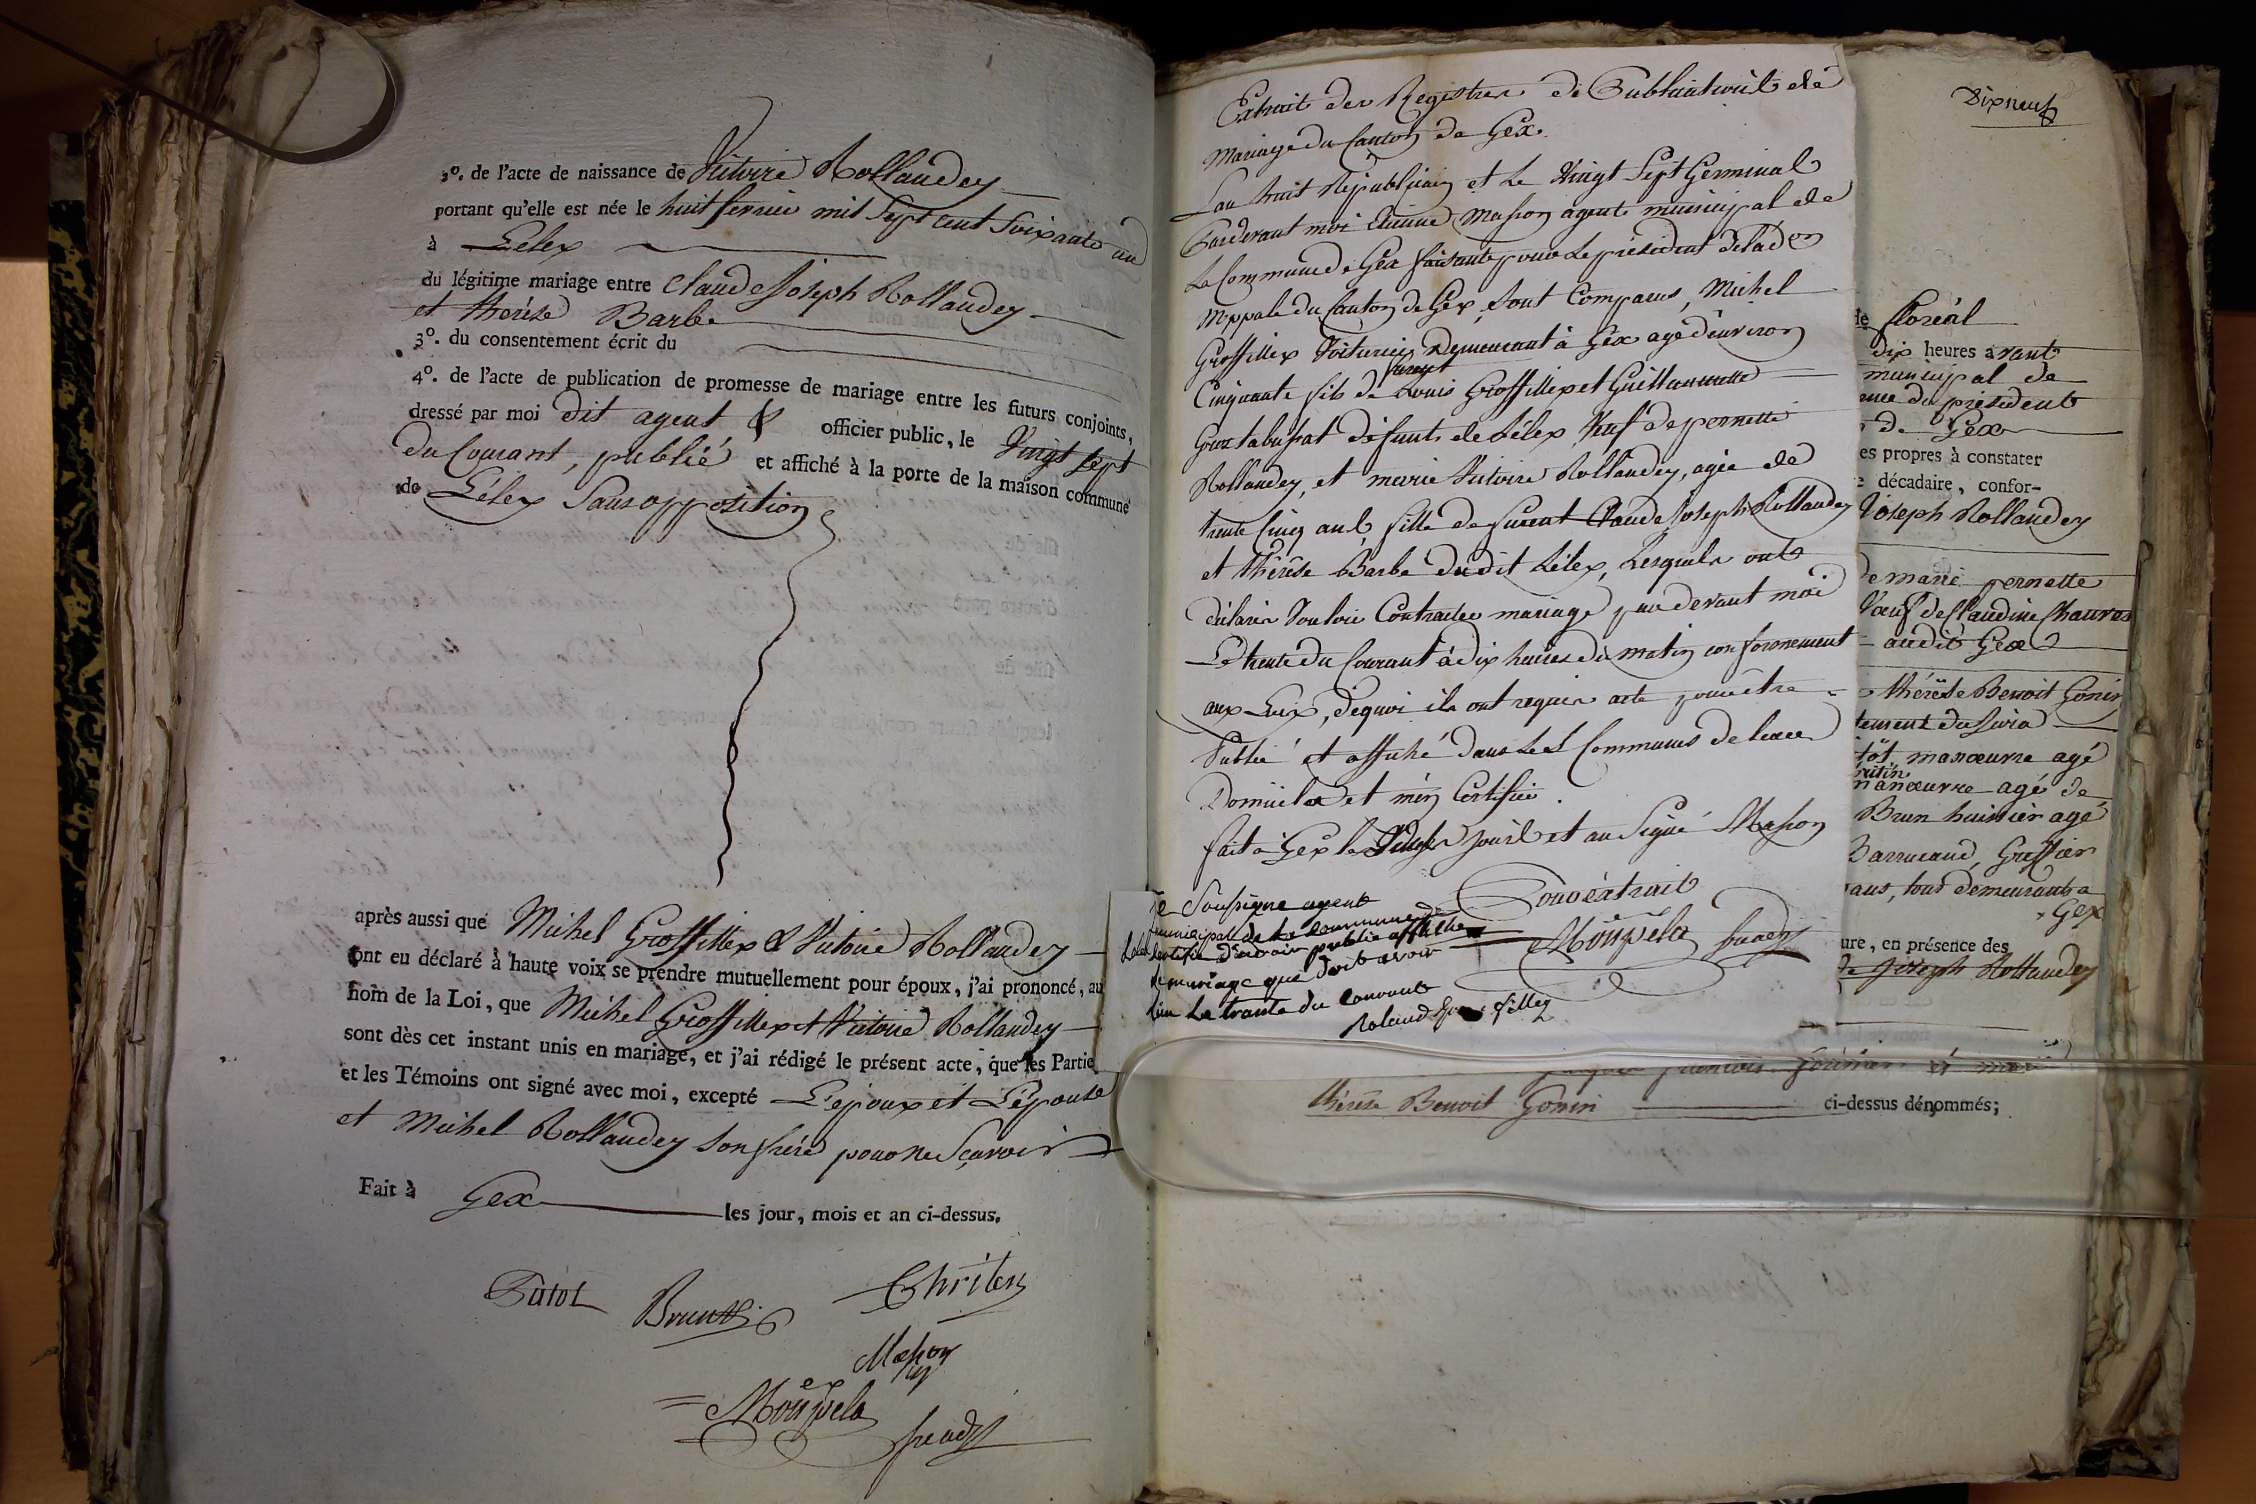 2º. de l'acte de naissance de Victoire Rollandey
portant qu'elle est née le huit fevrier mil Sept cent Soixante
à Lélex
du légitime mariage entre Claude Joseph Rollandey
et thérèse Barbe
3º. du consentement écrit du
4º. de l'acte de publication de promesse de mariage entre les futurs conjoints,
dressé par moi dit agent & officier public, le Vingt Sept
du Courant, publié et affiché à la porte de la maison commune
de Lélex Sans opposition
après aussi que Michel Grossillex & Victoire Rollandey
ont eu déclaré à haute voix se prendre mutuellement pour époux, j'ai prononcé, au
nom de la Loi, que Michel Grossillex et Victoire Rollandey
sont dès cet instant unis en mariage, et j'ai rédigé le présent acte, que les Partie
et les Témoins ont signé avec moi, excepté L'epoux et L'épouse
et Michel Rollandey Son frère pour ne Sçavoir
Fait à Gex les jour, mois et an ci-dessus.
Tutot Brun Chriten
Masson
Mouspela
Extrait des Registres de de
Mariage du Canton de Gex.
L'an huit Républicain et le Vingt Sept Germinal
Pardevant moi Etienne Masson agent municipal de
La Commune de Gex faisant pour le président de l'adon
mppale du Canton de Gex, Sont Comparus, Michel
Grossillex Voiturier Demeurant à Gex agé d'environ
Cinquante fils de Louis Grossillex et Guillaumette
defunts de Lélex Veuf de pernette
Rollandey, et marie Victoire Rollandey, agée de
trente Cinq ans, fille de Claude Joseph Rollandey
et thérèse Barbe dudit Lélex, Lesquels ont
déclarés Vouloir Contracter mariage par devant moi
Le trente du Courant à dix heures du matin conformement
aux Loix, dequoi ils ont requis acte pour être
Publié et affiché dans les Communes de leurs
Domiciles et m'en Certifier.
fait à Gex les jour et an Signé Masson
Pour extrait
Mouspela
Je Soussigné agent
municipal de La commune de
Lélex Certifie d'avoir publié affiché
le mariage que doit avoir
lieu Le trante du courant
Dixneuf
de floréal
dix heures avant
municipal de
du président
de Gex
es propres à constater
décadaire, confor-
Joseph Rollandey
de marie pernette
Veuf de Claudine Chauves
audit Gex
thérèse Benoit Gonin
manoeuvre agé
manoeuvre agé de
Brun huissier agé
Barrucand, Greffier
ans, tous demeurants a
Gex
ure, en présence des
de joseph Rollandey
thérèse Benoit Gonin ci-dessus dénommés;